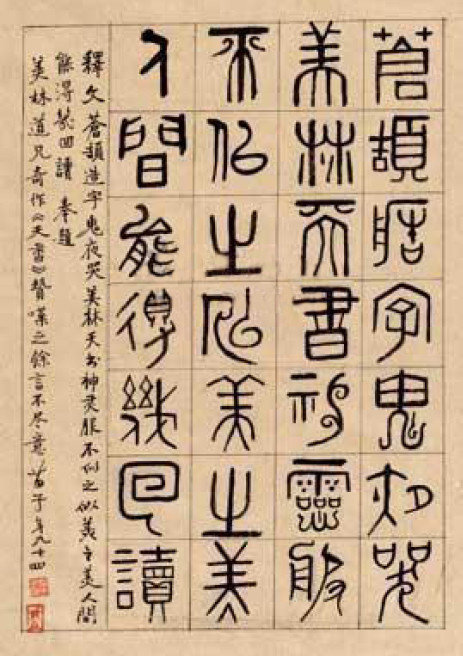 蒼頡造字鬼夜哭
美林天書神靈服
不佀之佀美之美
人間能得幾回讀
釋文蒼頡造字鬼夜哭美林天书神灵服不似之似美之美人間
能得幾回讀 奉題
美林道兄奇作《天書》贊嘆之餘言不尽意苗子年九十四